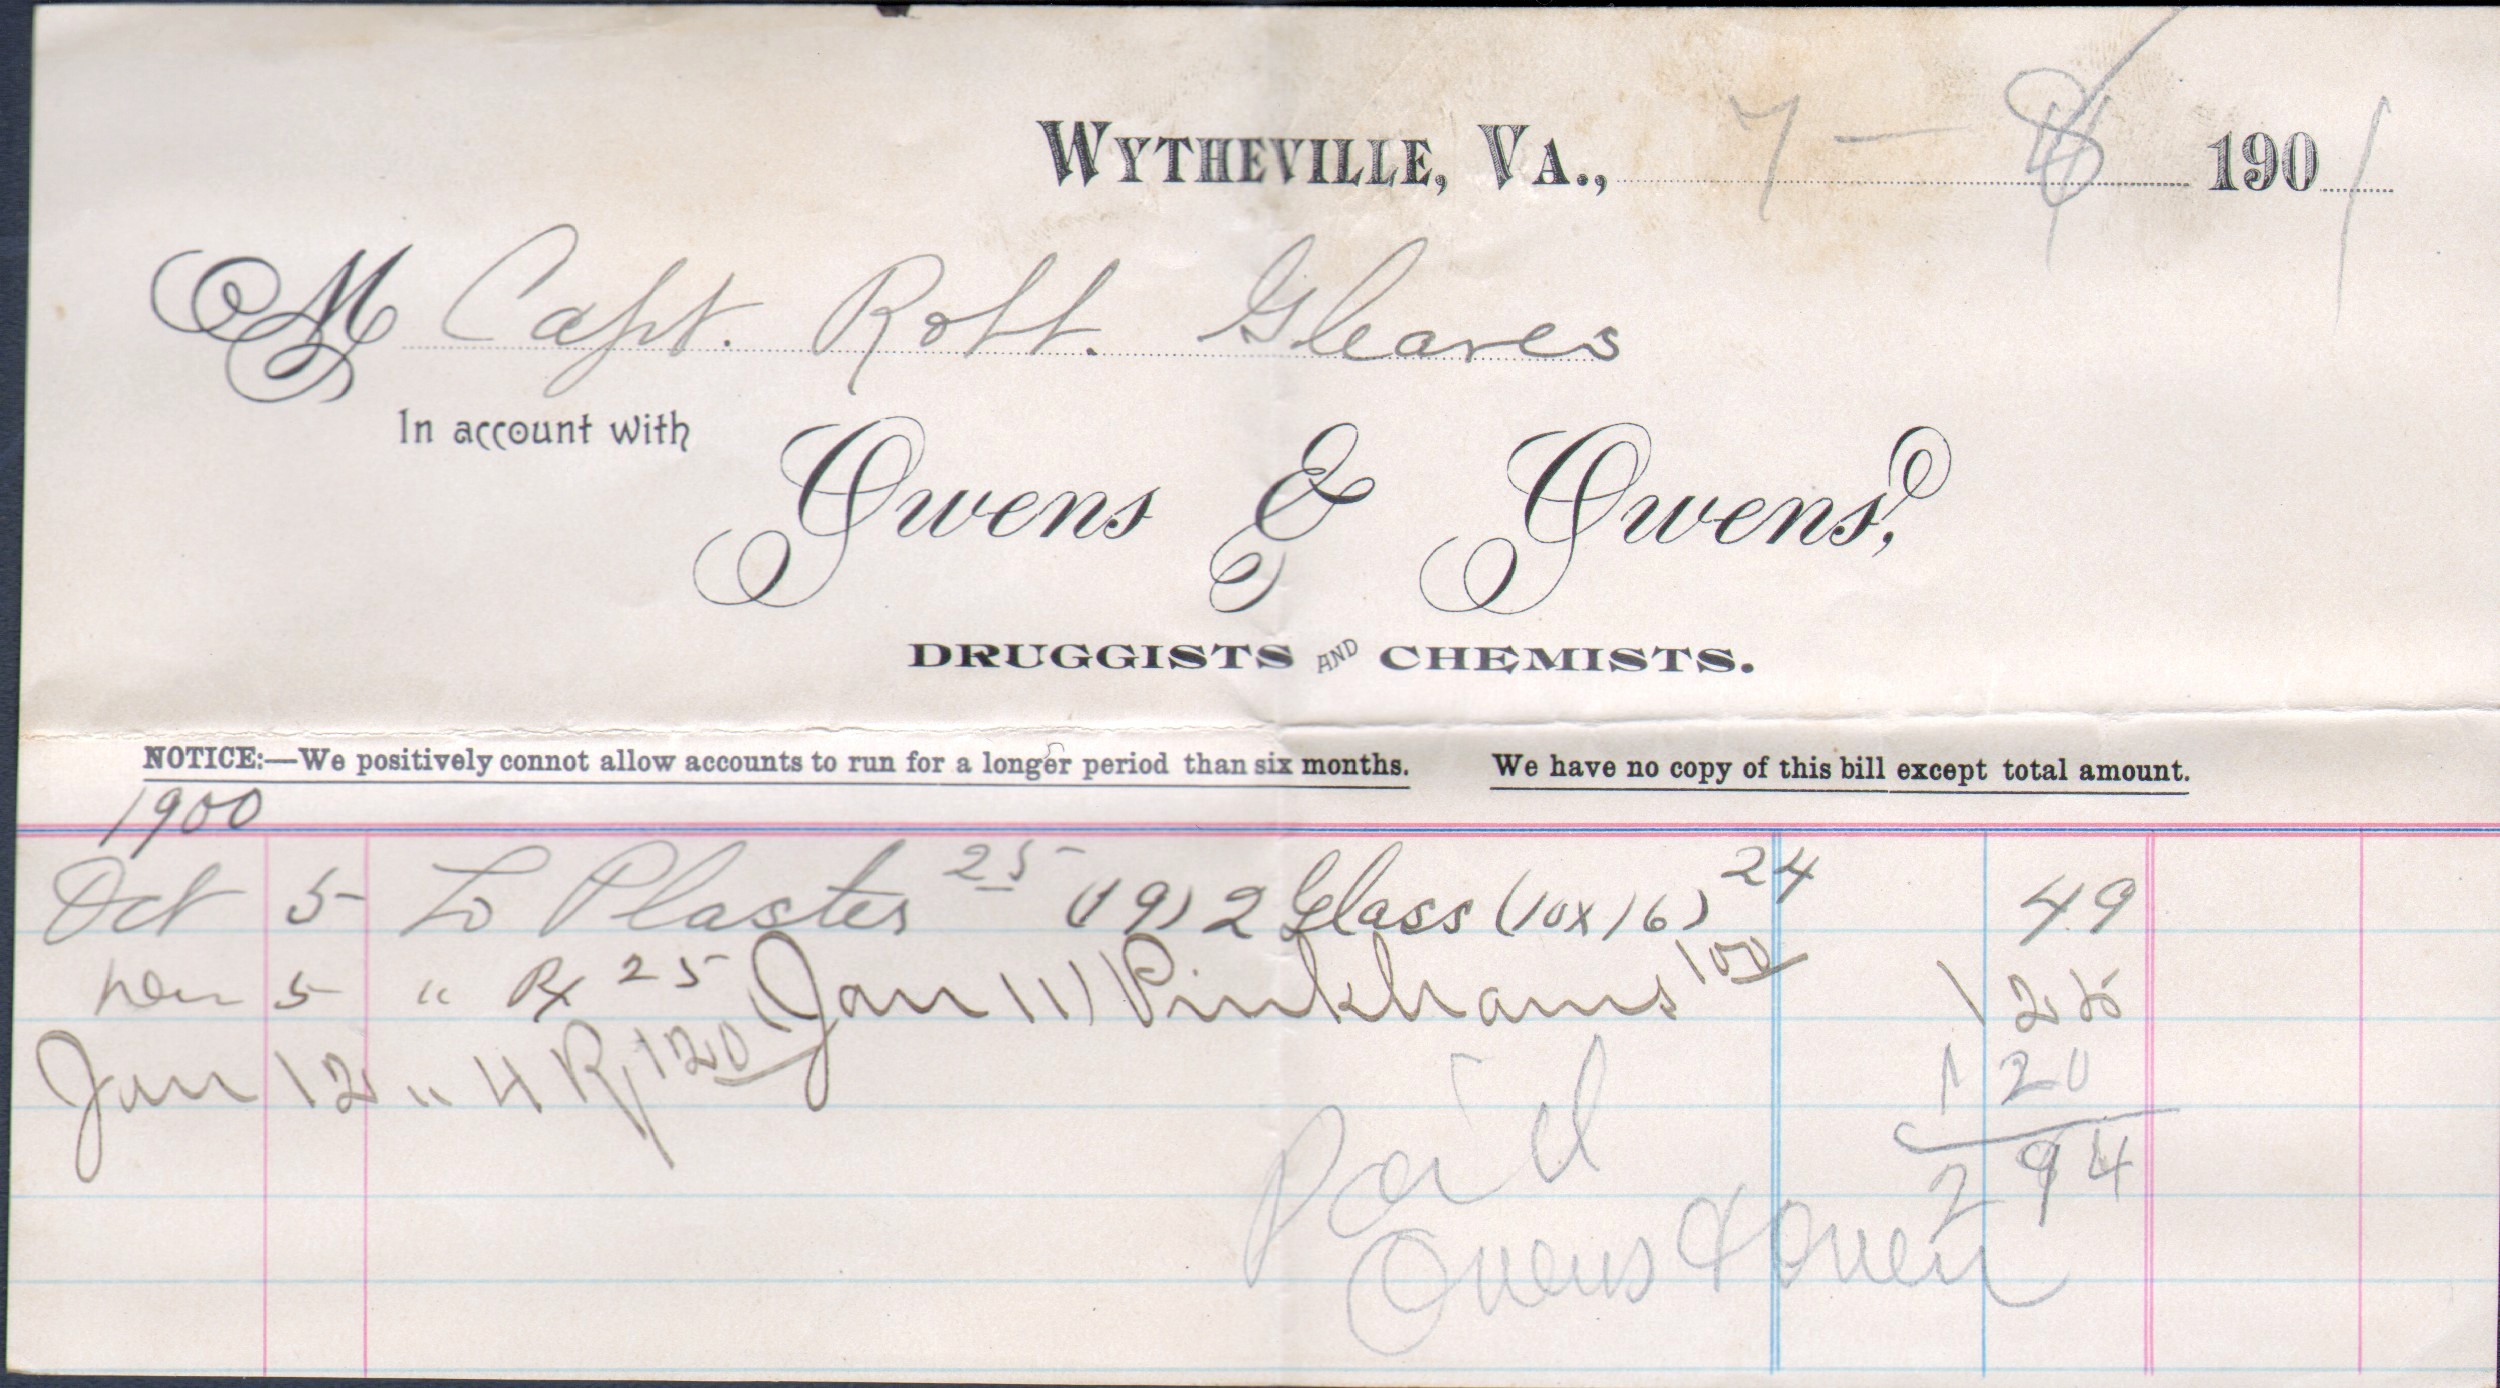 WYTHEVILLE, VA., 7 - 190 1
M Capt. Robt. Gleaves
In account with
Owens & Owens,
DRUGGISTS AND CHEMISTS.
NOTICE:—We positively connot allow accounts to run for a longer period than six months. We have no copy of this bill except total amount.
1900
Oct 5 To Plaster 25 (19) 2 Glass (10x16) 24 49
Nov 5 " Rx 25 Jan 11) Pinkhams 100 1 25
Jan 12 " 4 Rx 120 1 20
2 94
Paid
Owens & Owen